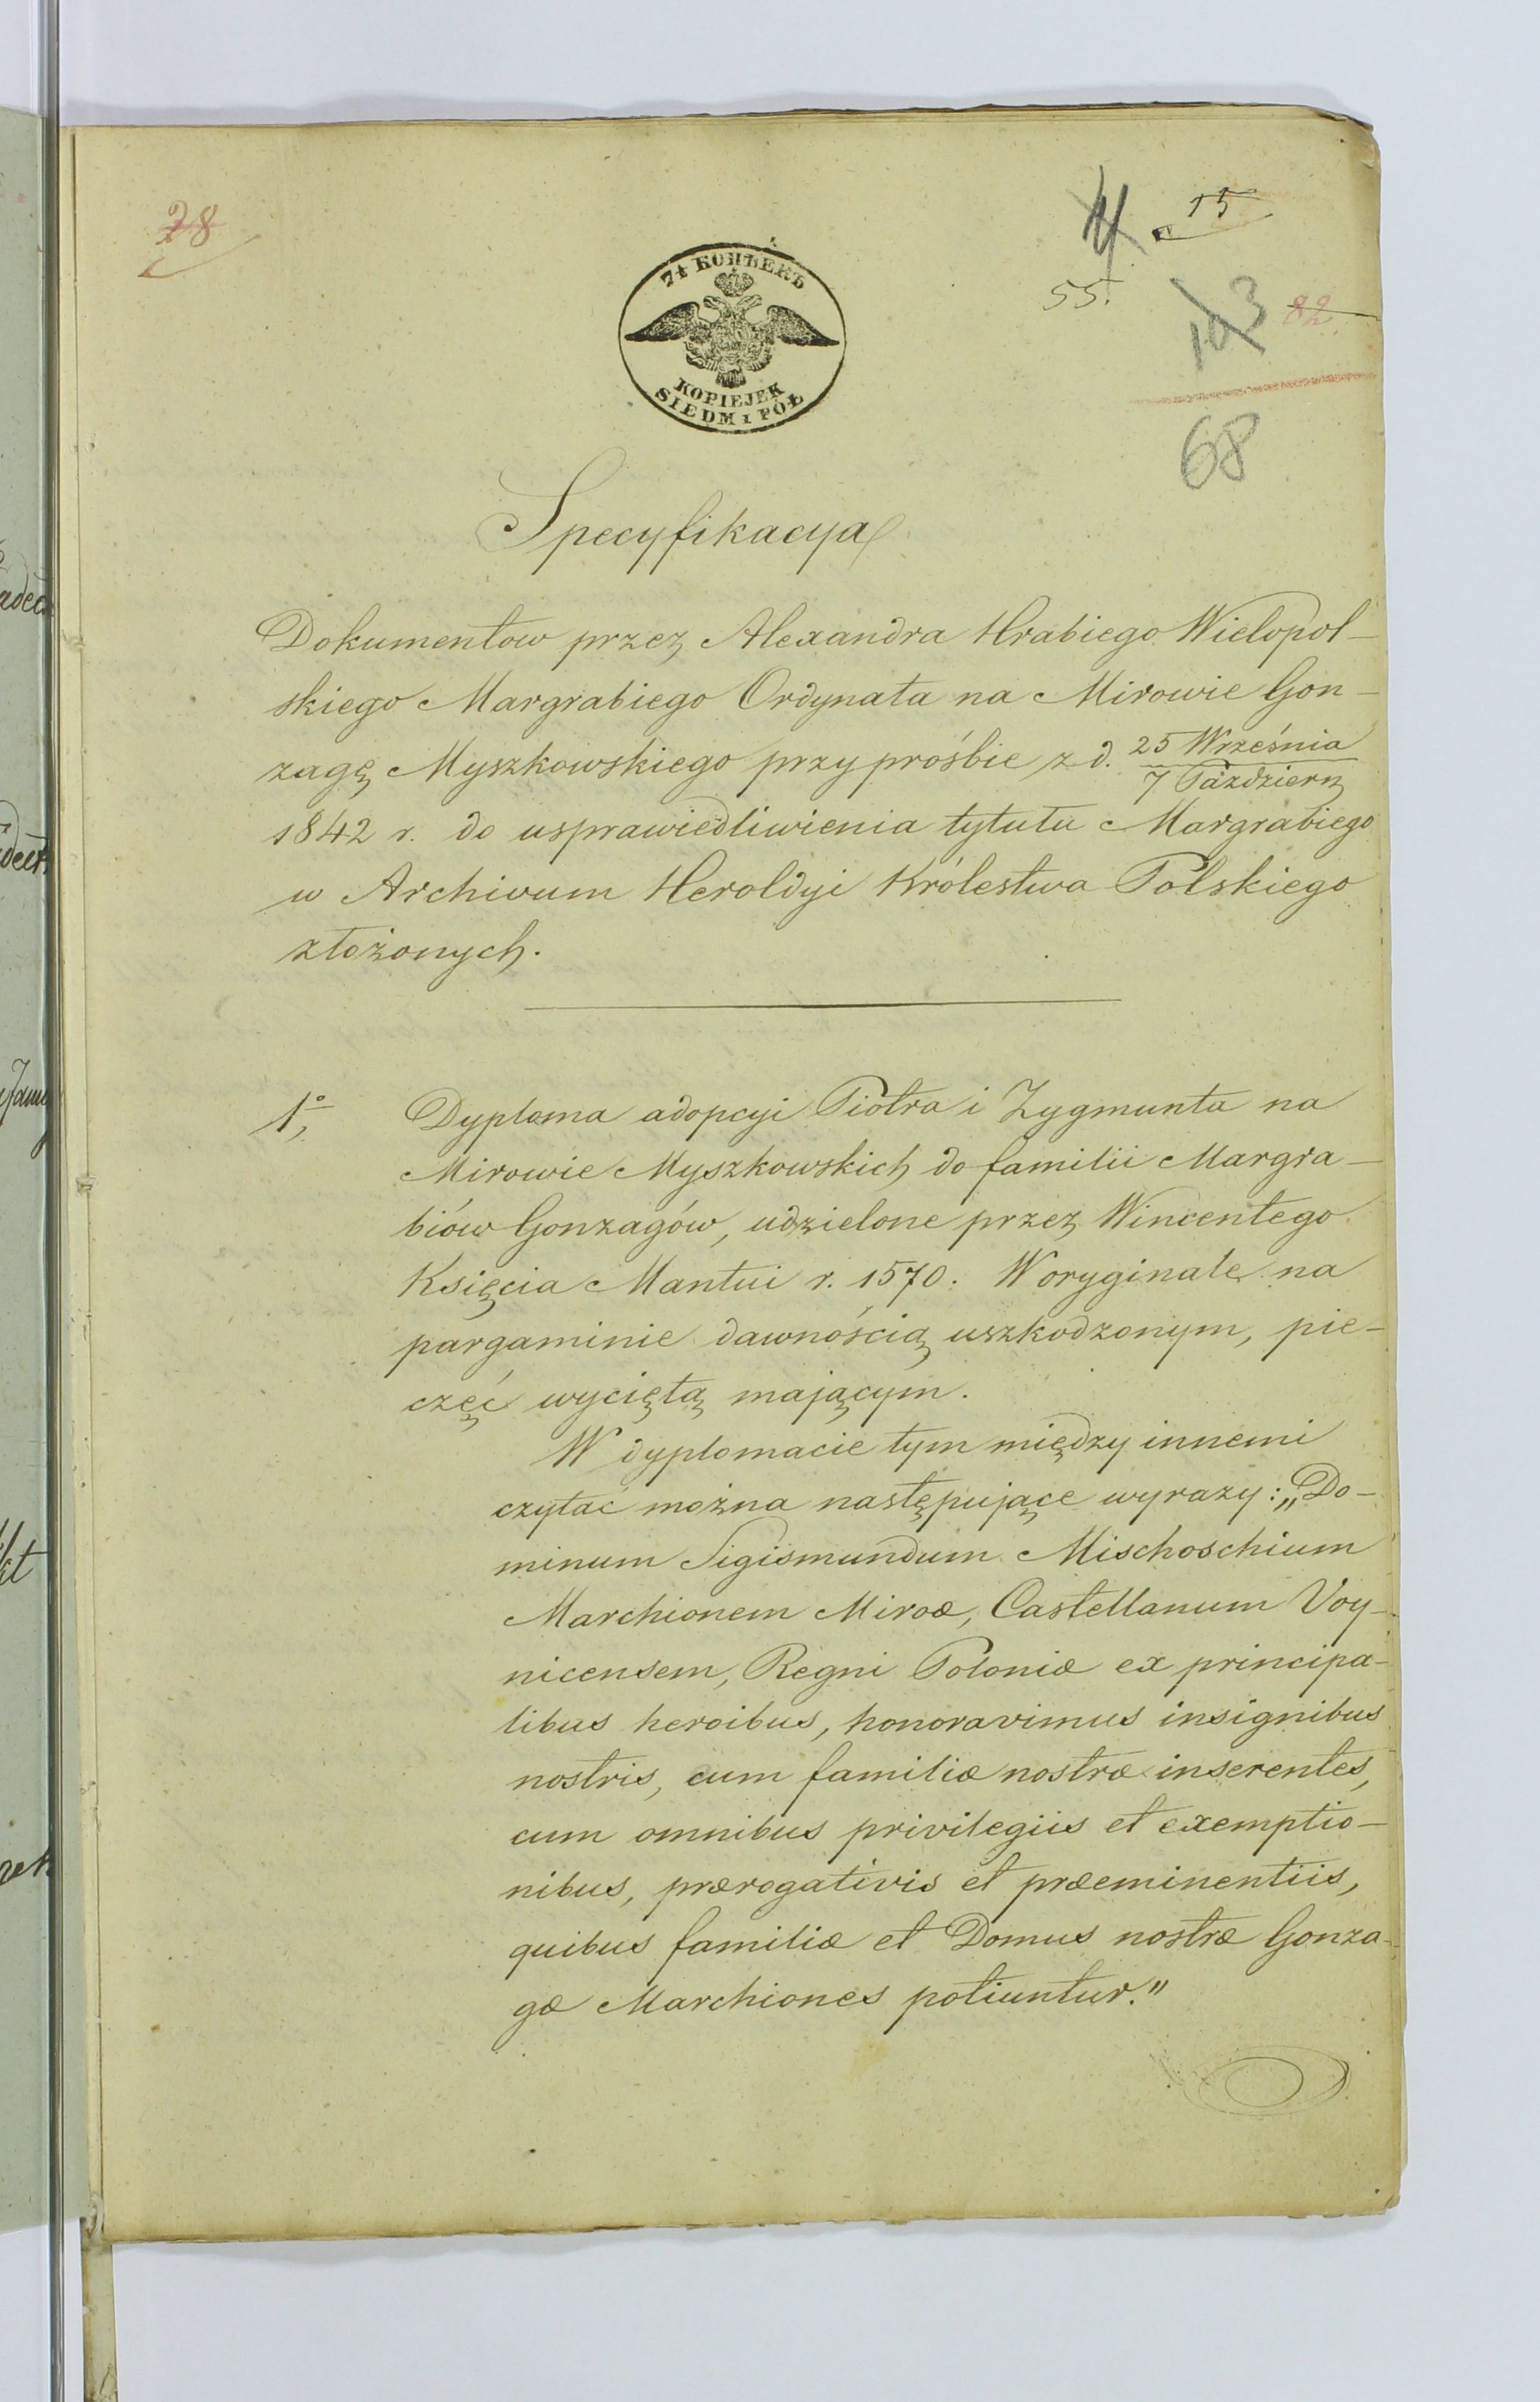 28
15
55.
103
82.
68
7½ КОПѢЕКЪ
KOPIEJEK
SIEDM i PÓŁ
Specyfikacya
Dokumentow przez Alexandra Hrabiego Wielopol-
skiego Margrabiego Ordynata na Mirowie Gon-
zagę Myszkowskiego przy prośbie z d. 25 Września
7 Październ
1842 r. do usprawiedliwienia tytułu Margrabiego
w Archivum Heroldyi Królestwa Polskiego
złożonych.
1°,
Dyploma adopcyi Piotra i Zygmunta na
Mirowie Myszkowskich do familii Margra-
biów Gonzagów, udzielone przez Wincentego
Księcia Mantui r. 1570. W oryginale na
pargaminie dawnością uszkodzonym, pie-
częć wyciętą mającym.
W dyplomacie tym między innemi
czytać można następujące wyrazy: „Do-
minum Sigismundum Mischoschium
Marchionem Miroæ, Castellanum Voy-
nicensem, Regni Poloniæ ex principa-
libus heroibus, honoravimus insignibus
nostris, eum familiæ nostræ inserentes,
cum omnibus privilegiis et exemptio-
nibus, prærogativis et præeminentiis,
quibus familiæ et Domus nostræ Gonza-
gæ Marchiones potiuntur."